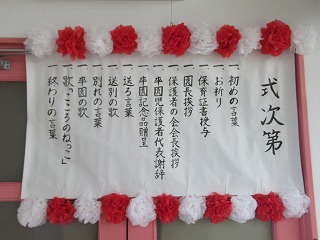 式次第
一 初めの言葉
一 お祈り
一 保育証書授与
一 園長挨拶
一 保護者の会会長挨拶
一 卒園児保護者代表謝辞
一 卒園記念品贈呈
一 送る言葉
一 送別の歌
一 別れの言葉
一 卒園の歌
歌「こころのねっこ」
一 終わりの言葉